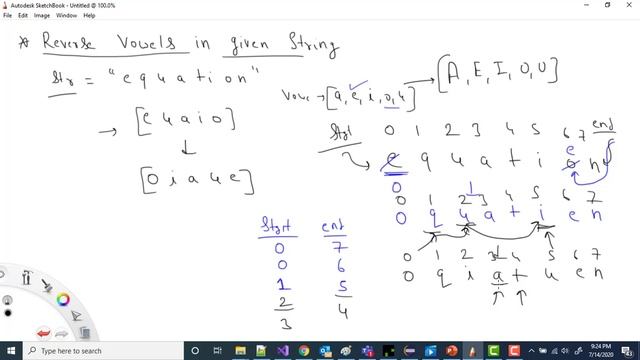 Autodesk SketchBook - Untitled @ 100.0%
File Edit Image Window Help
* Reverse Vowels in given String
Str = "equation"
Vowe → [a, e, i, o, u] → [A, E, I, O, U]
→ [e u a i o]
↓
[o i a u e]
Start 0 1 2 3 4 5 6 7 end
e
e q u a t i o n
0
0 1 2 3 4 5 6 7
0 q u a t i e n
0 1 2 3 4 5 6 7
0 q i a t u e n
Start end
0 7
0 6
1 5
2 4
3
Type here to search
9:24 PM
7/14/2020